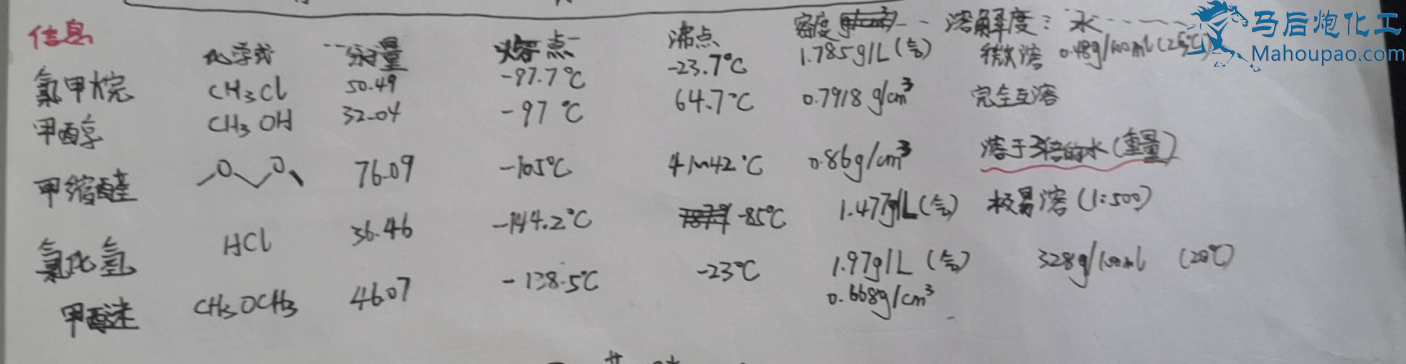 信息
化学式 分子量 熔点 沸点 密度 溶解度：水
氯甲烷 CH3Cl 50.49 -97.7℃ -23.7℃ 1.785g/L(气) 微溶 0.48g/100ml(25℃)
甲醇 CH3OH 32.04 -97℃ 64.7℃ 0.7918g/cm³ 完全互溶
甲缩醛 O O 76.09 -105℃ 41~42℃ 0.86g/cm³ 溶于3倍的水(重量)
氯化氢 HCl 36.46 -144.2℃ -85℃ 1.477g/L(气) 极易溶(1:500)
甲醚 CH3OCH3 46.07 -138.5℃ -23℃ 1.97g/L(气) 328g/100ml (20℃)
0.668g/cm³
马后炮化工
Mahoupao.com